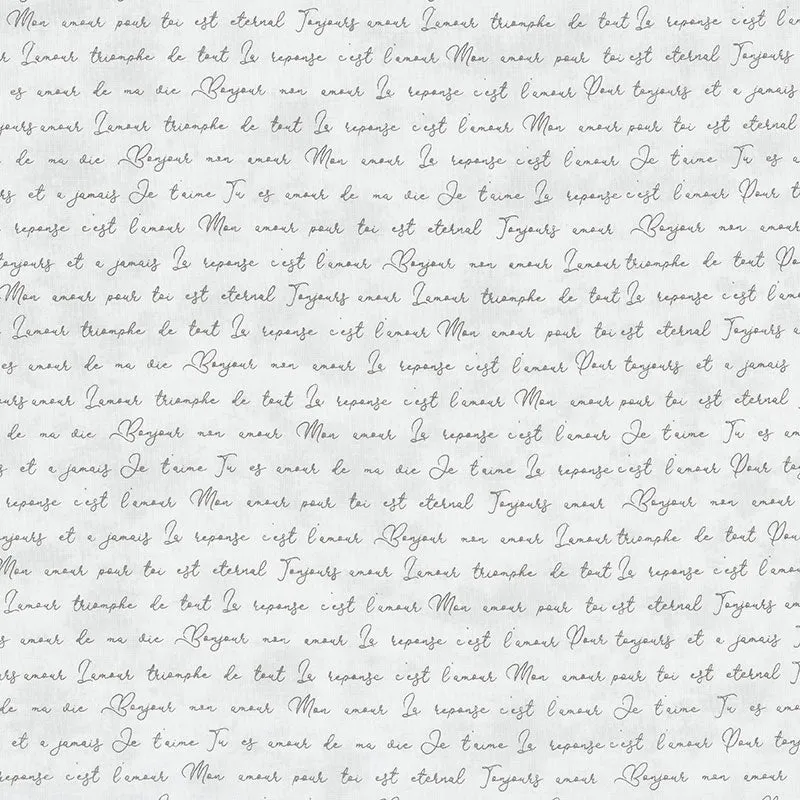 Mon amour pour toi est eternal Tonjours amour L'amour triomphe de tout La reponse c'est l'a
L'amour triomphe de tout La reponse c'est l'amour Mon amour pour toi est eternal Tonjours
es amour de ma vie Bonjour mon amour La reponse c'est l'amour Pour tonjours et a jamais
jours amour L'amour triomphe de tout La reponse c'est l'amour Mon amour pour toi est eternal
de ma vie Bonjour mon amour Mon amour La reponse c'est l'amour Je t'aime Tu es a
rs et a jamais Je t'aime Tu es amour de ma vie Je t'aime La reponse c'est l'amour Pour t
reponse c'est l'amour Mon amour pour toi est eternal Tonjours amour Bonjour mon amour
tonjours et a jamais La reponse c'est l'amour Bonjour mon amour L'amour triomphe de tout Po
Mon amour pour toi est eternal Tonjours amour L'amour triomphe de tout La reponse c'est l'amo
L'amour triomphe de tout La reponse c'est l'amour Mon amour pour toi est eternal Tonjours a
es amour de ma vie Bonjour mon amour La reponse c'est l'amour Pour tonjours et a jamais
ours amour L'amour triomphe de tout La reponse c'est l'amour Mon amour pour toi est eternal
de ma vie Bonjour mon amour Mon amour La reponse c'est l'amour Je t'aime Tu es am
s et a jamais Je t'aime Tu es amour de ma vie Je t'aime La reponse c'est l'amour Pour to
reponse c'est l'amour Mon amour pour toi est eternal Tonjours amour Bonjour mon amour
njours et a jamais La reponse c'est l'amour Bonjour mon amour L'amour triomphe de tout Pou
Mon amour pour toi est eternal Tonjours amour L'amour triomphe de tout La reponse c'est l'amou
L'amour triomphe de tout La reponse c'est l'amour Mon amour pour toi est eternal Tonjours am
s amour de ma vie Bonjour mon amour La reponse c'est l'amour Pour tonjours et a jamais
urs amour L'amour triomphe de tout La reponse c'est l'amour Mon amour pour toi est eternal
de ma vie Bonjour mon amour Mon amour La reponse c'est l'amour Je t'aime Tu es amo
et a jamais Je t'aime Tu es amour de ma vie Je t'aime La reponse c'est l'amour Pour ton
reponse c'est l'amour Mon amour pour toi est eternal Tonjours amour Bonjour mon amour